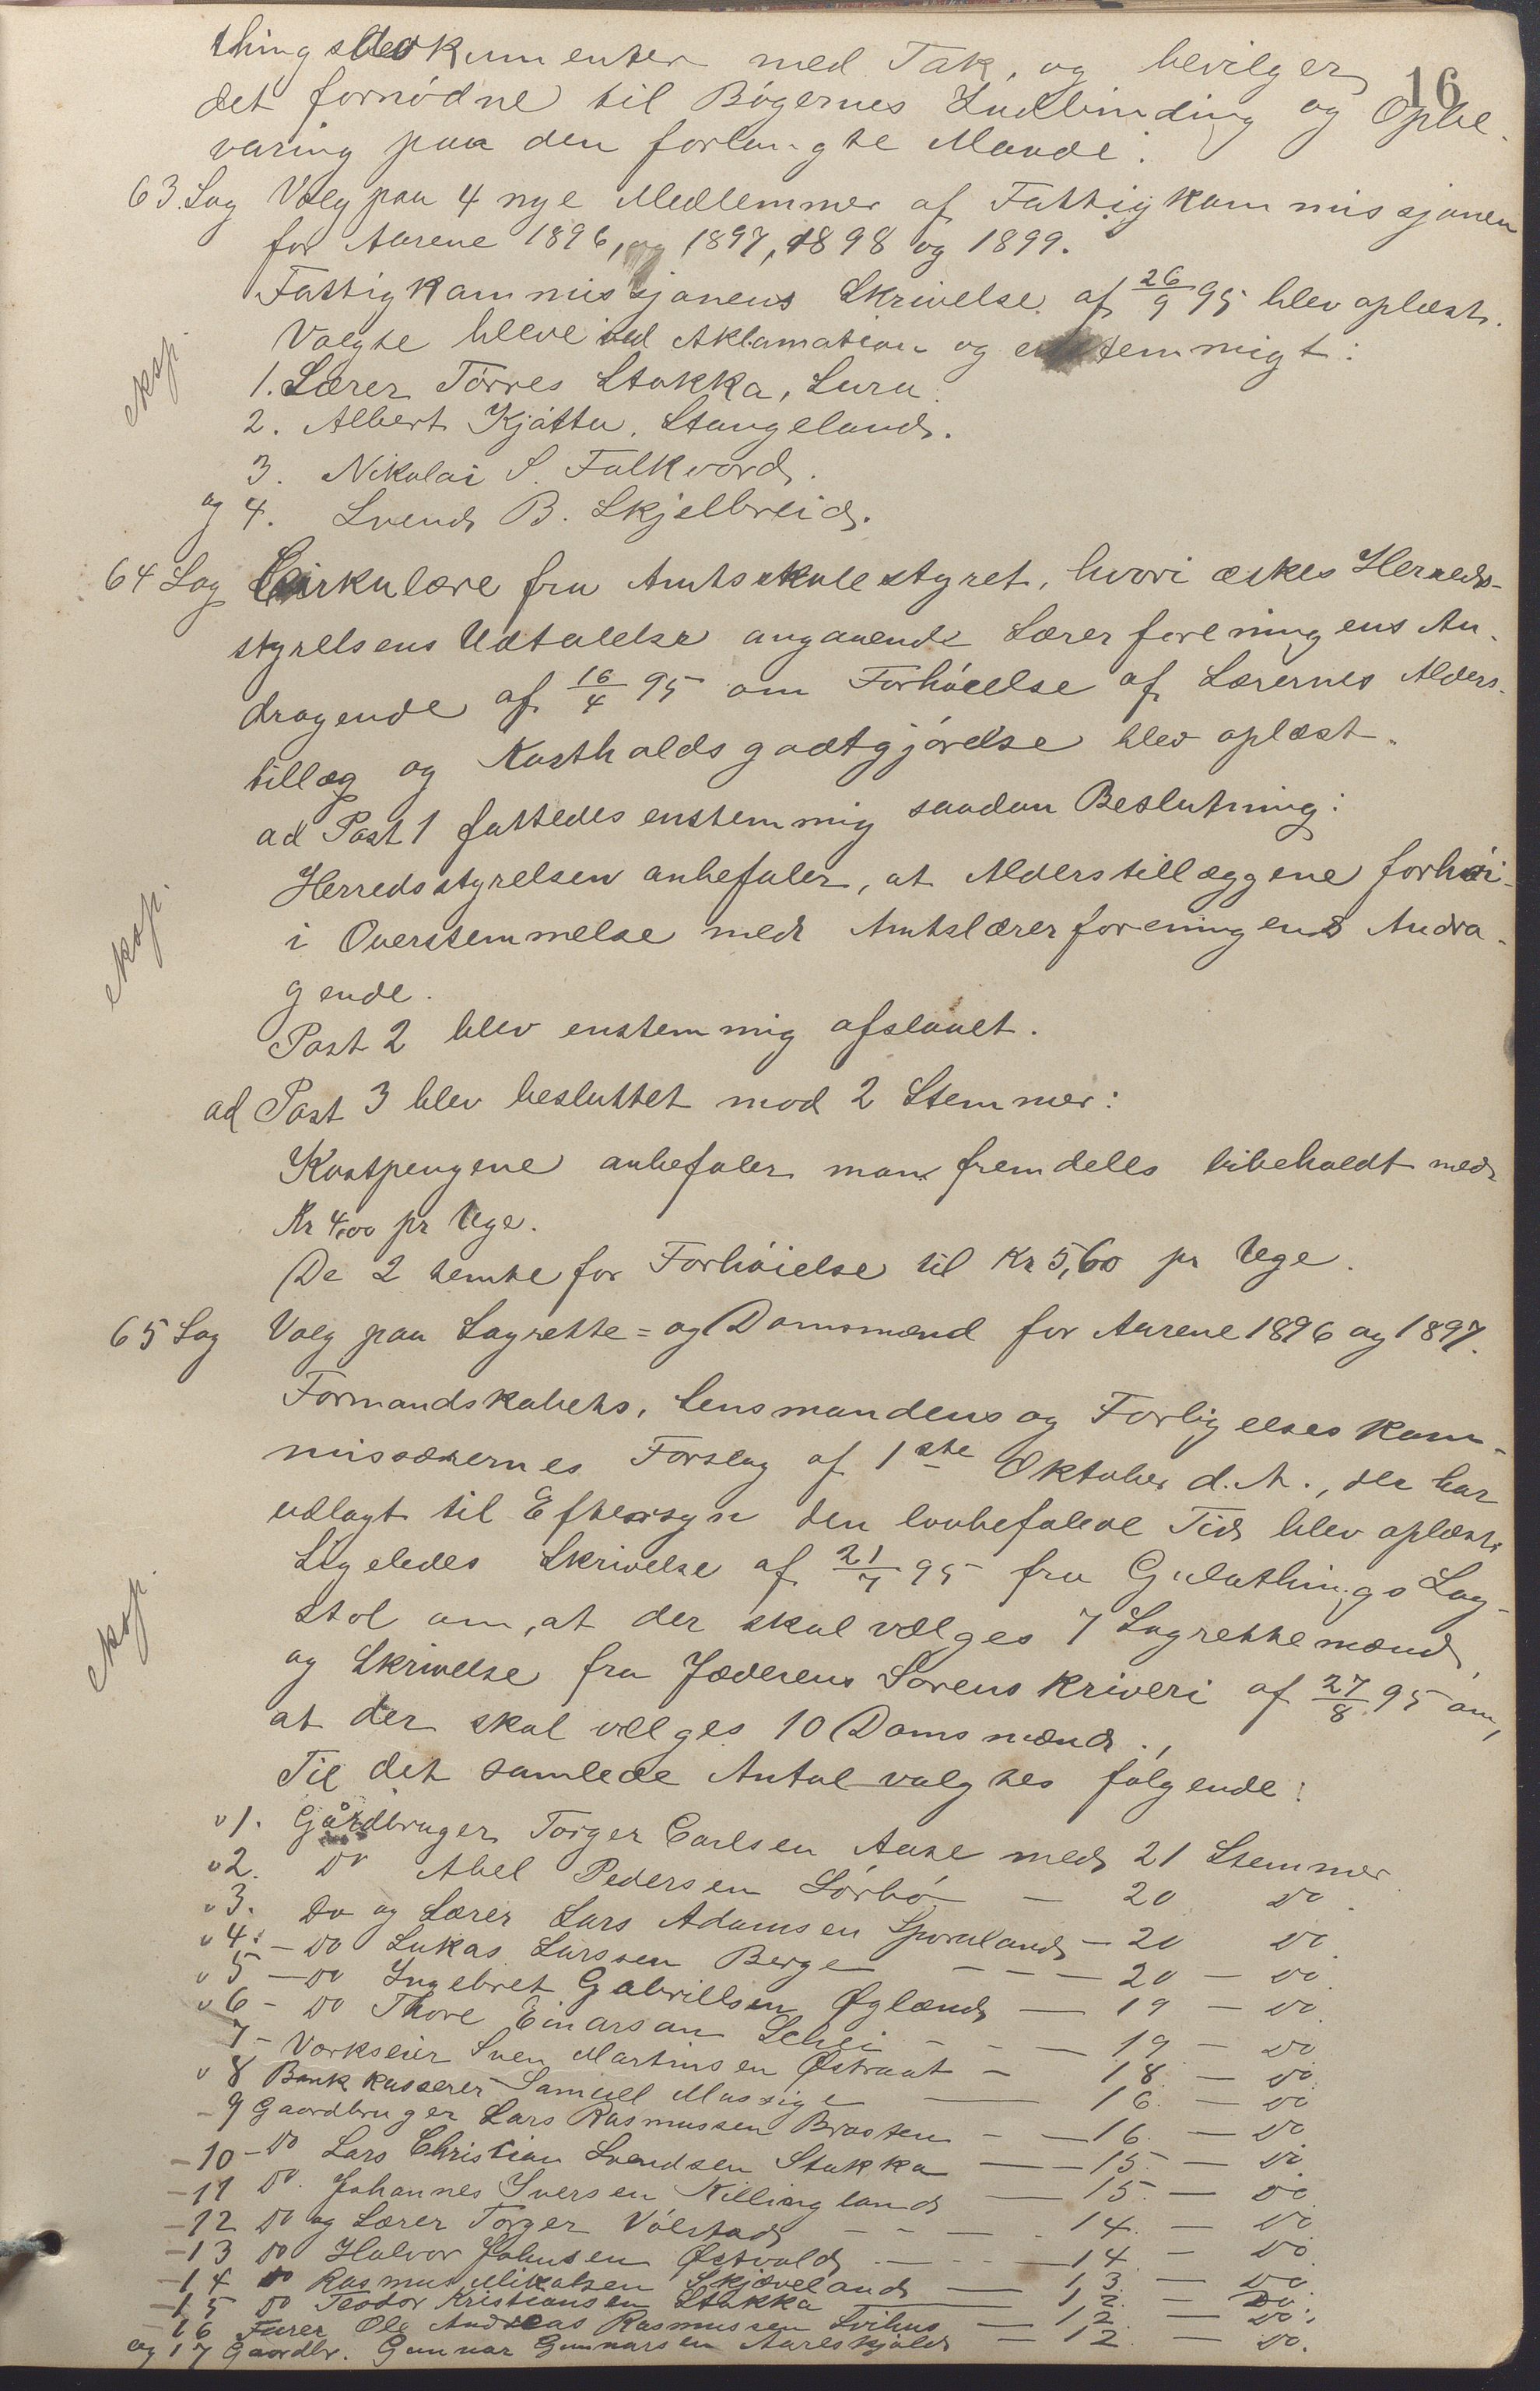 16
thingsdokumenter med Tak, og bevilger
det fornödne til Bögernes Indbinding og Opbe-
varing paa den forlangte Maade.
63. Sag Valg paa 4 nye Medlemmer af Fattigkommissjonen
for Aarene 1896, og 1897, 1898 og 1899.
Fattigkommissjonens Skrivelse af 26/9 95 blev oplæst.
Valgte bleve ved Aklamation og enstemmigt:
eksp.
1. Lærer Törres Stokka, Lura.
2. Albert Kjåtta, Stangeland.
3. Nikolai S. Folkvord.
og 4. Svend B. Skjelbreid.
64 Sag Cirkulære fra Amtsskolestyret, hvori æskes Herreds-
styrelsens Udtalelse angaaende Lærerforeningens An-
dragende af 16/4 95 om Forhöielse af Lærernes Alders-
tillæg og Kostholdsgodtgjörelse blev oplæst.
ad Post 1 fattedes enstemmig saadan Beslutning:
Herredsstyrelsen anbefaler, at Alderstillæggene forhöi-
eksp.
i Overstemmelse med Amtslærerforeningens Andra-
gende.
Post 2 blev enstemmig afslaaet.
ad Post 3 blev besluttet mod 2 Stemmer:
Kostpengene anbefaler man fremdeles bibeholdt med
Kr 4,00 pr Uge.
De 2 stemte for Forhöielse til Kr 5,60 pr Uge.
65 Sag Valg paa Lagrette= og Domsmænd for Aarene 1896 og 1897.
Formandskabets, Lensmandens og Forligelseskom-
missærernes Forslag af 1ste Oktober d. A., der har
udlagt til Eftersyn den lovbefalede Tid blev oplæst.
Ligeledes Skrivelse af 21/7 95 fra Gulathings Lag-
eksp.
stol om, at der skal vælges 7 Lagrettemænd,
og Skrivelse fra Jæderens Sorenskriveri af 27/8 95 om,
at der skal vælges 10 Domsmænd.,
Til det samlede Antal valgtes følgende:
v 1. Gårdbruger Torger Carlsen Aase med 21 Stemmer
v 2. Do Abel Pedersen Sörbö — 20 Do.
v 3. Do og Lærer Lars Adamsen Sporaland — 20 Do.
v 4. — Do Lukas Larssen Berge — — — 20 — Do.
v 5 — Do Ingebret Gabrillsen Øgland — 19 — Do.
v 6 — Do Thore Einarson Schei — — — 19 — Do
7 — Værkseier Sven Martinsen Østraat — 18 — Do.
v 8 Bankkasserer Samuel Mossige — 16 — Do
— 9 Gaardbruger Lars Rasmussen Brasten — — 16 — Do.
— 10 — Do Lars Christian Svendsen Stokka — — 15 — Do.
— 11 Do. Johannes Iversen Killingland — 15 — Do
— 12 Do og Lærer Torger Völstad — — — 14 — Do
— 13 Do Halvor Johnsen Østvold — — 14 — Do.
— 14 Do Rasmus Mikalsen Skjæveland — 13 — Do.
— 15 Do Teodor Kristiansen Stokka — 12 — Do.
— 16 Furer Ole Andreas Rasmussen Svihus — 12 — Do.
og 17 Gaardbr. Gunnar Gunnarsen Aareskjold — 12 — Do.